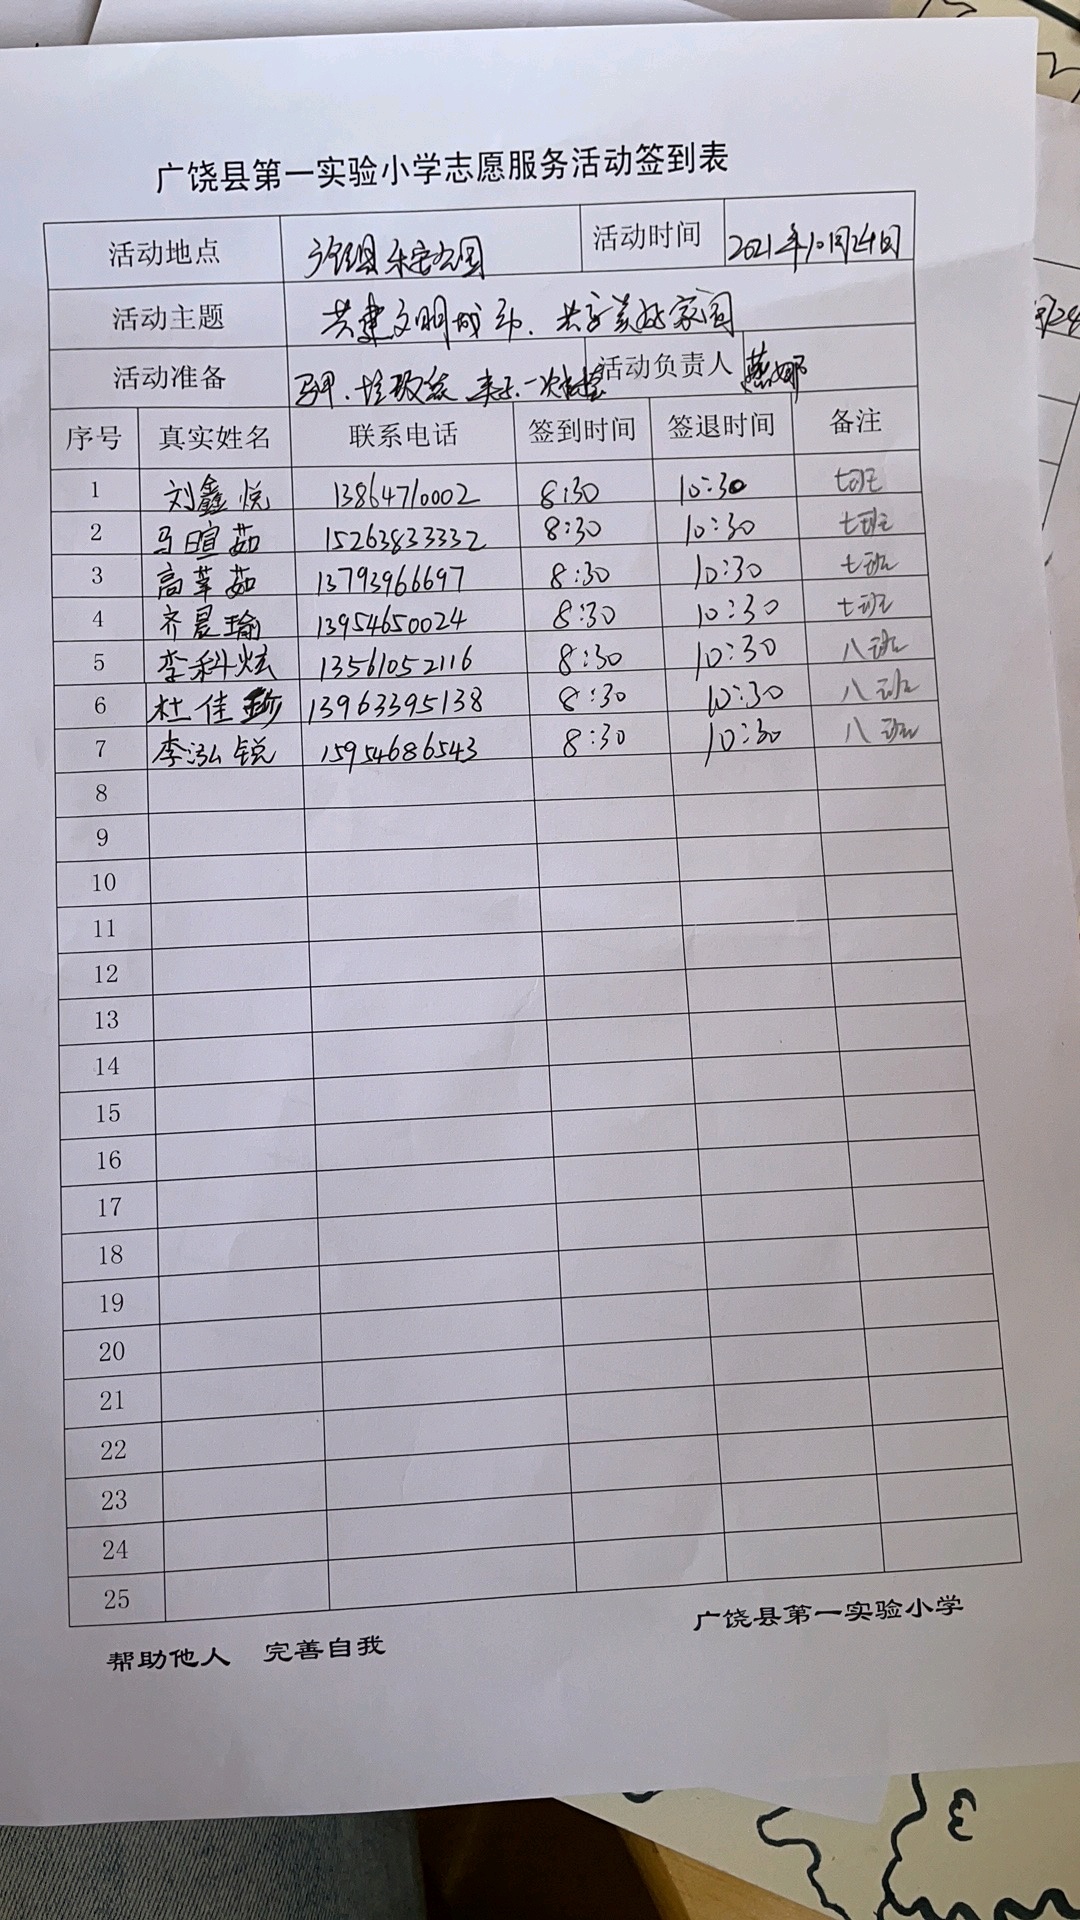 广饶县第一实验小学志愿服务活动签到表
活动地点 广饶县乐安公园 活动时间 2021年10月24日
活动主题 共建文明城市、共享美好家园
活动准备 马甲、垃圾袋、夹子、一次性手套 活动负责人 燕娜
序号 真实姓名 联系电话 签到时间 签退时间 备注
1 刘鑫悦 13864710002 8:30 10:30 七班
2 马暄茹 15263833332 8:30 10:30 七班
3 高莘茹 13793966697 8:30 10:30 七班
4 齐晨瑜 13954650024 8:30 10:30 七班
5 李科炫 13561052116 8:30 10:30 八班
6 杜佳珍 13963395138 8:30 10:30 八班
7 李泓锐 15954686543 8:30 10:30 八班
8
9
10
11
12
13
14
15
16
17
18
19
20
21
22
23
24
25
帮助他人 完善自我 广饶县第一实验小学
3